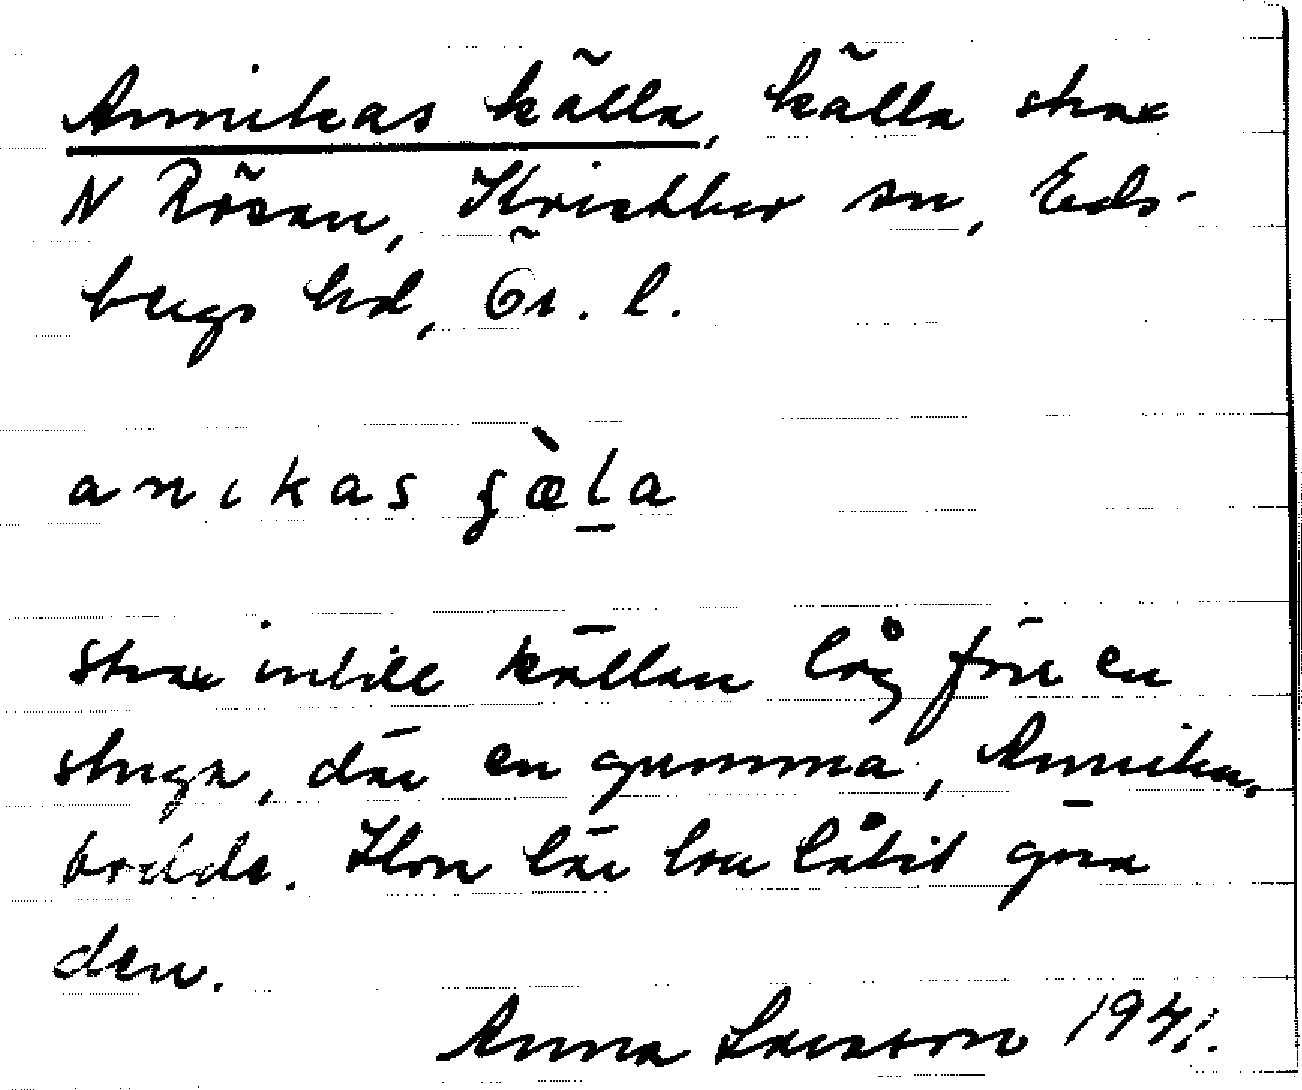 Annikas källa, källa strax
N Rösan, Knistbro sn, Eds-
bergs hd, Ör. l.
anikas ʃæ̀la
Strax intill källan låg förr en
stuga, där en gumma, Annika,
bodde. Hon lär ha låtit göra
den.
Anna Larsson 1941.